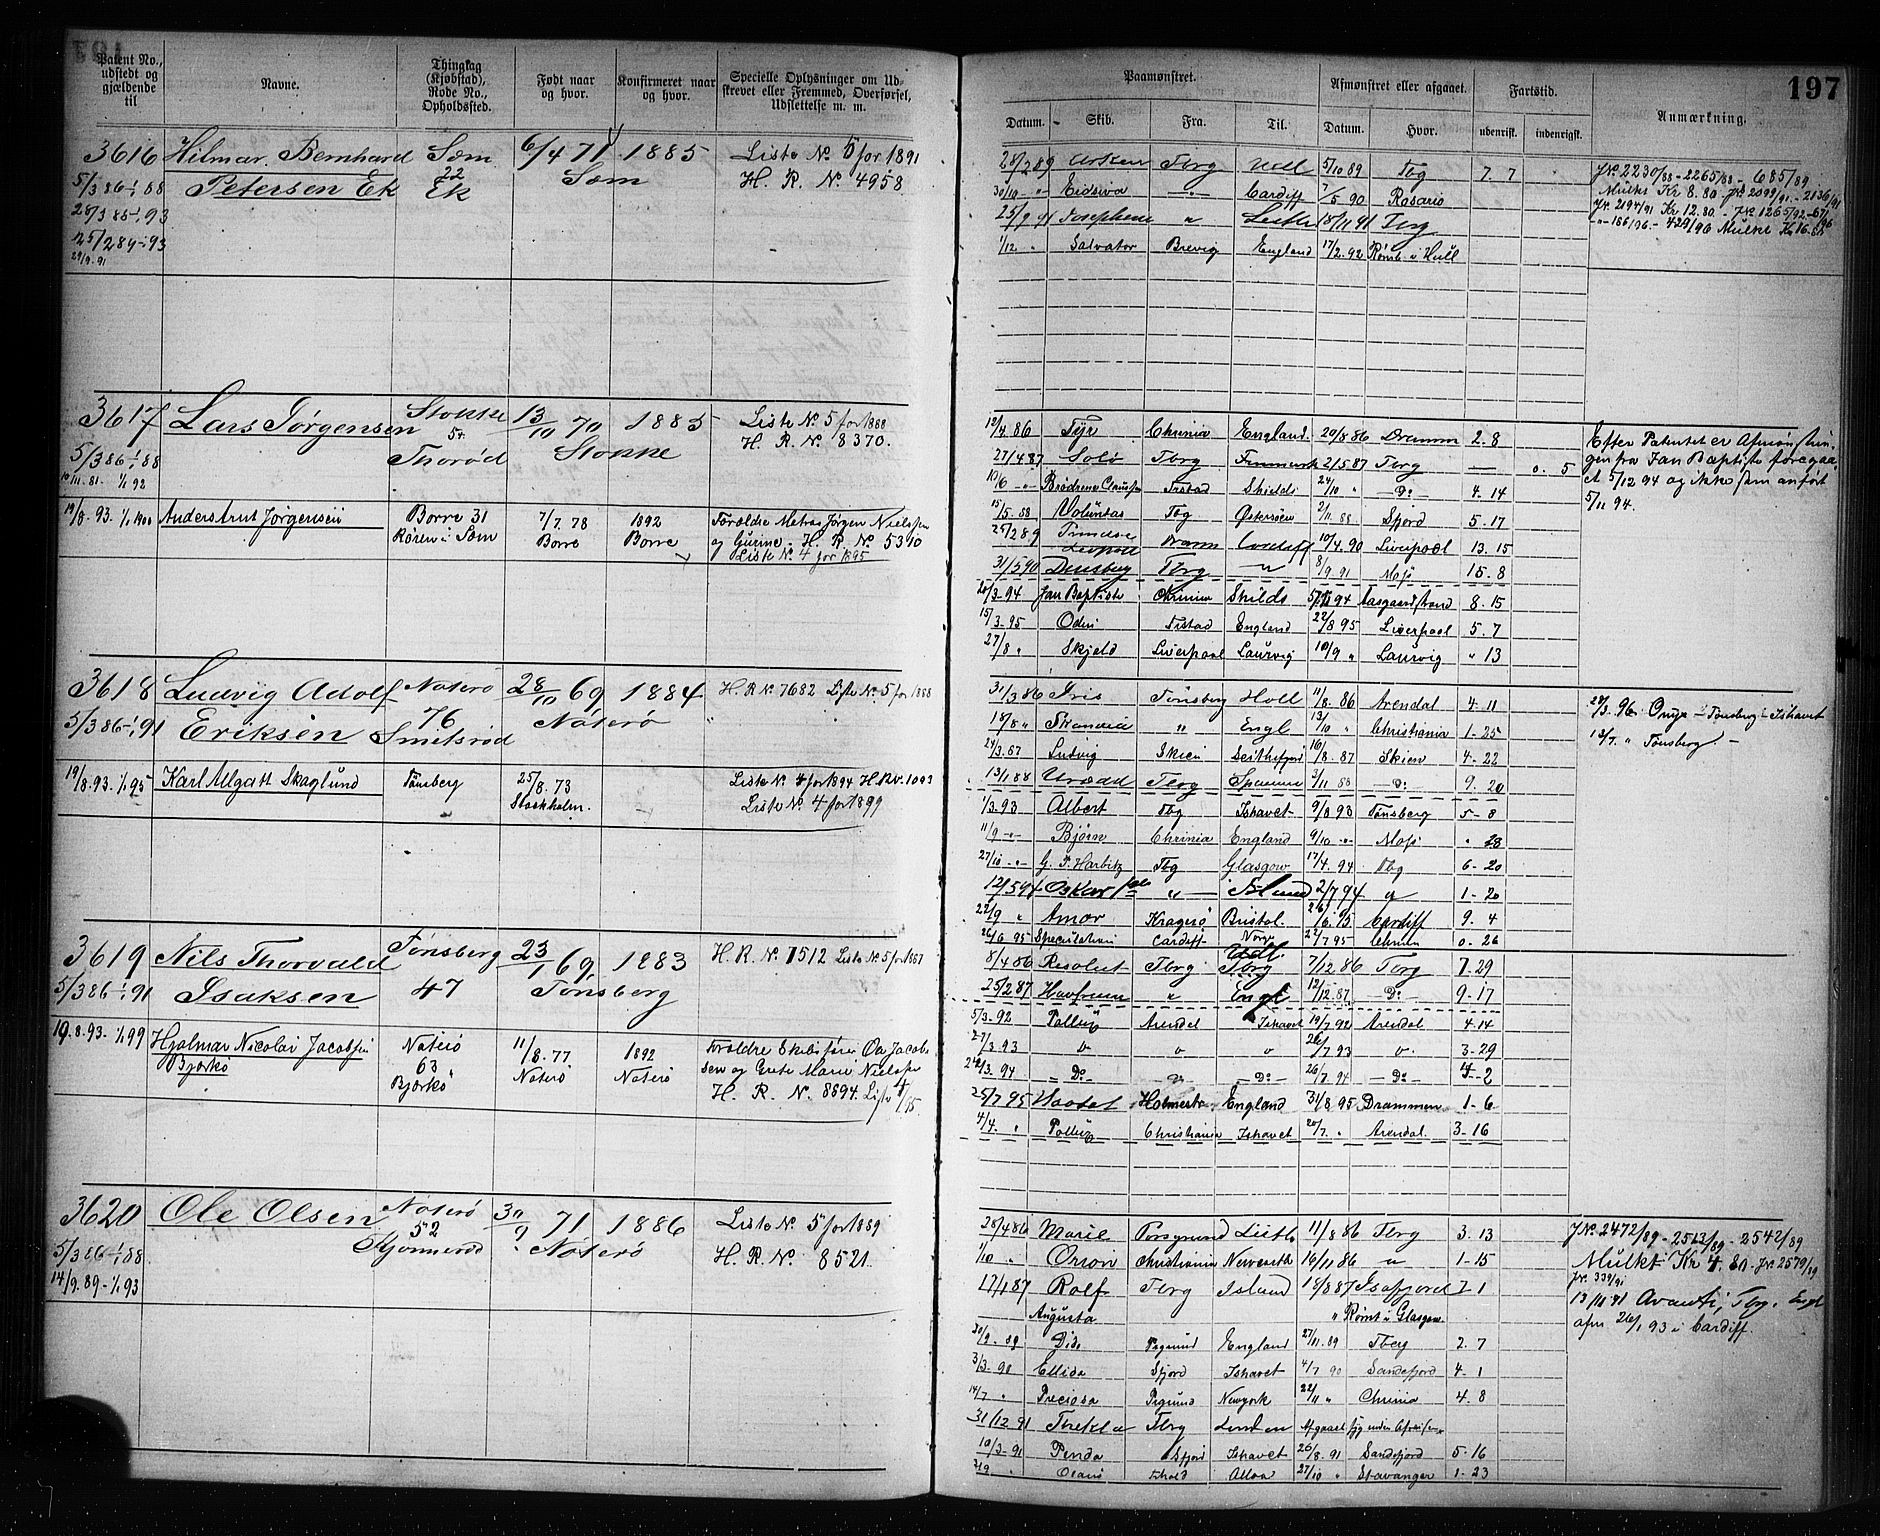 197
Patent No., udstedt og gjældende til
Navne.
Thinglag (Kjøbstad), Rode No., Opholdssted.
Født naar og hvor.
Konfirmeret naar og hvor.
Specielle Oplysninger om Udstrevet eller Fremmed, Overførsel, Udslettelse m. m.
Paamønstret.
Afmønstret eller afgaaet.
Fartstid.
Anmærkning.
Datum. Skib. Fra. Til. Datum. Hvor. udenrigst. indenrigst.
3616 Hilmar Bernhard Sæm 6/4 71 1885 Liste No. 5 for 1891
5/3 86-1/1 88 Petersen Ek 22 Ek Sæm H. R. No. 4958
28/3 85-1/1 93
25/2 89-1/1 93
29/9. 91
28/2 89 Tbrg Udl 5/10 89 Tbg 7. 7
30/10 -"- Eidsiva -"- Cardiff 7/5 90 Rosario
25/9 91 Josephine " Leith 18/11 91 Tbrg
1/12 " Salvator Brevig England 17/2. 92 Rømt i Hull
JNo. 2230/88-2265/88-685/89
Mulkt Kr 8.80 JNo. 2099/91.-2136/91
JNo. 2194/91 Kr 12.80 - JNo. 1265/92-67/96
-"-186/96.-429/90 Mulkt Kr 16.80
3617 Lars Jørgensen Stokke 13/10 70 1885 Liste No. 5 for 1888
5/3 86-1/1 88 54 Thorød Stokke H. R. No. 8370.
10/11. 81. 1/1 92
12/4 86 Tyr Chrinia England 20/8 86 Dramm 2. 8
27/4 87 Solo Tbrg Finmark 21/5 87 Tbrg — 0. 5
10/6 -"- Brødrene Clausen Frstad Shields 24/10 " -Do- 4. 14
15/5. 88 Voluntas Tbg Østersøen 2/11 88 Sfjord 5. 17
25/2 89 Dramm Cardiff 10/4. 90 Liverpool 13. 15
31/5 90 Tbrg " 8/9. 91 Moss 15. 8
20/3. 94 Jan Baptiste Chrinia Shilds 94 Aasgaardstrand 8. 15
15/3. 95 Odin Frstad England 22/8 95 Liverpool 5. 7
27/8 " Skjold Liverpool Laurvig 10/9 " Laurvig " 13
Efter Patentet er Afmønstrin-
gen fra Jan Baptiste foregaa-
et 5/12 94 og ikke som anført
5/11 94.
19/8. 93. 1/1. 1900 Anders Arnt Jørgensen Borre 31 7/7. 78 1892 Forældre Matros Jørgen Nielsen
Røren i Sæm Borre Borre og Gurine. H. R. No. 5310
Liste No. 4 for 1895
3618 Ludvig Adolf Nøterø 28/10 69 1884 H. R. No. 7682 Liste No. 5 for 1888
5/3 86-1/1 91 Eriksen 76 Smitsrød Nøterø "
31/3 86 Iris Tønsberg Holl 11/8. 86 Arendal 4. 11
18/8 " Skandia " Engl 13/10 " Christiania 1-25
24/3. 87 Ludvig Skien 16/8. 87 Skien 4-22
13/1 88 Urædd Tbrg Spanien 2/11 88 -Do- 9. 20
1/3. 93 Albert Tbg Ishavet 9/8 93 Tønsberg 5-8
11/9 -"- Bjørn Chrinia England 9/10 -"- Moss " 28
27/10 -"- G. P. Harbitz Tbg Glasgow 17/4. 94 Tbg 6-20
12/5 94 Oskar " Island 2/7 94 " 1-20
22/9 " Amor Kragerø Bristol Cardiff 9. 4
26/6 95 Speculation Cardiff Norge 22/7 95 Chrinia 0-26
28/3. 96. Onyx - Tønsberg - Ishavet
13/7. " Tønsberg. -
19/8. 93. 1/1 95 Karl Allgatt Skaglund Tønsberg 25/8. 73 Stockholm. Liste No. 4 for 1894 H. R. No. 1093
Liste No. 4 for 1899
3619 Nils Thorvald Tønsberg 23/1 69, 1883 H. R. No. 7512 Liste No. 5 for 1887
5/3 86-1/1 91 Isaksen 47 Tønsberg
8/4 86 Resolut Tbrg Udl. Tbrg 7/12 86 Tbrg 7-29
25/2 87 Havfruen " Engl 12/12. 87. Do 9-17
5/3. 92 Pollux Arendal Ishavet 19/7. 92 Arendal 4. 14
27/3. 93 " " " 26/7 93 " 3-29
3. 94 Do " Do 26/7. 94 Do 4-2
25/7 95 Holmestr. England 31/8. 95 Drammen 1-6
4/4. " Pollux Christiania Ishavet 20/7. " Arendal. 3-16
19. 8. 93. 1/1 99 Hjalmar Nicolai Jacobsen Nøterø 11/8. 77 1892 Forældre Skibsfører Ole Jacob-
Bjerkø 63 Bjerkø Nøterø Nøterø sen og Grete Marie Nielsen
H. R. No. 8694. Liste 4/95.
3620 Ole Olsen Nøterø 30/9 71 1886 Liste No. 5 for 1889
5/3 86-1/1 88 52 Nøterø H. R. No. 8521.
14/9. 89-1/1 93
28/4 86 Marie Porsgrund Leith 11/8 86 Tbrg 3. 13
1/10 " Orion Christiania 16/11 86 " 1-15
17/1 87 Rolf Tbrg Island 18/8 87 Isafjord 7-1
Augusta " Rømt i Glasgow
30/9. 89 Dido England 27/11. 89 Tberg 2. 7
3/3. 90 Ellida Sfjord Ishavet 4/7 90 Sandefjord 4-1
14/7 " Preciosa Pgrund Newyork 22/11 " Chrinia 4. 8
31/12. 91 Thekla Tbrg London
10/3. 91 Penda Sfjord Ishavet 26/8. 91 Sandefjord 5-16
Alloa 27/10 " Stavanger 1-23
JNo. 2472/89-2513/89-2542/89
Mulkt Kr 4. 80. Jr. 2579/89
Jr. 339/91
13/11 91 Avanti, Tbg. Engl
afm 26/1 93 i Cardiff.